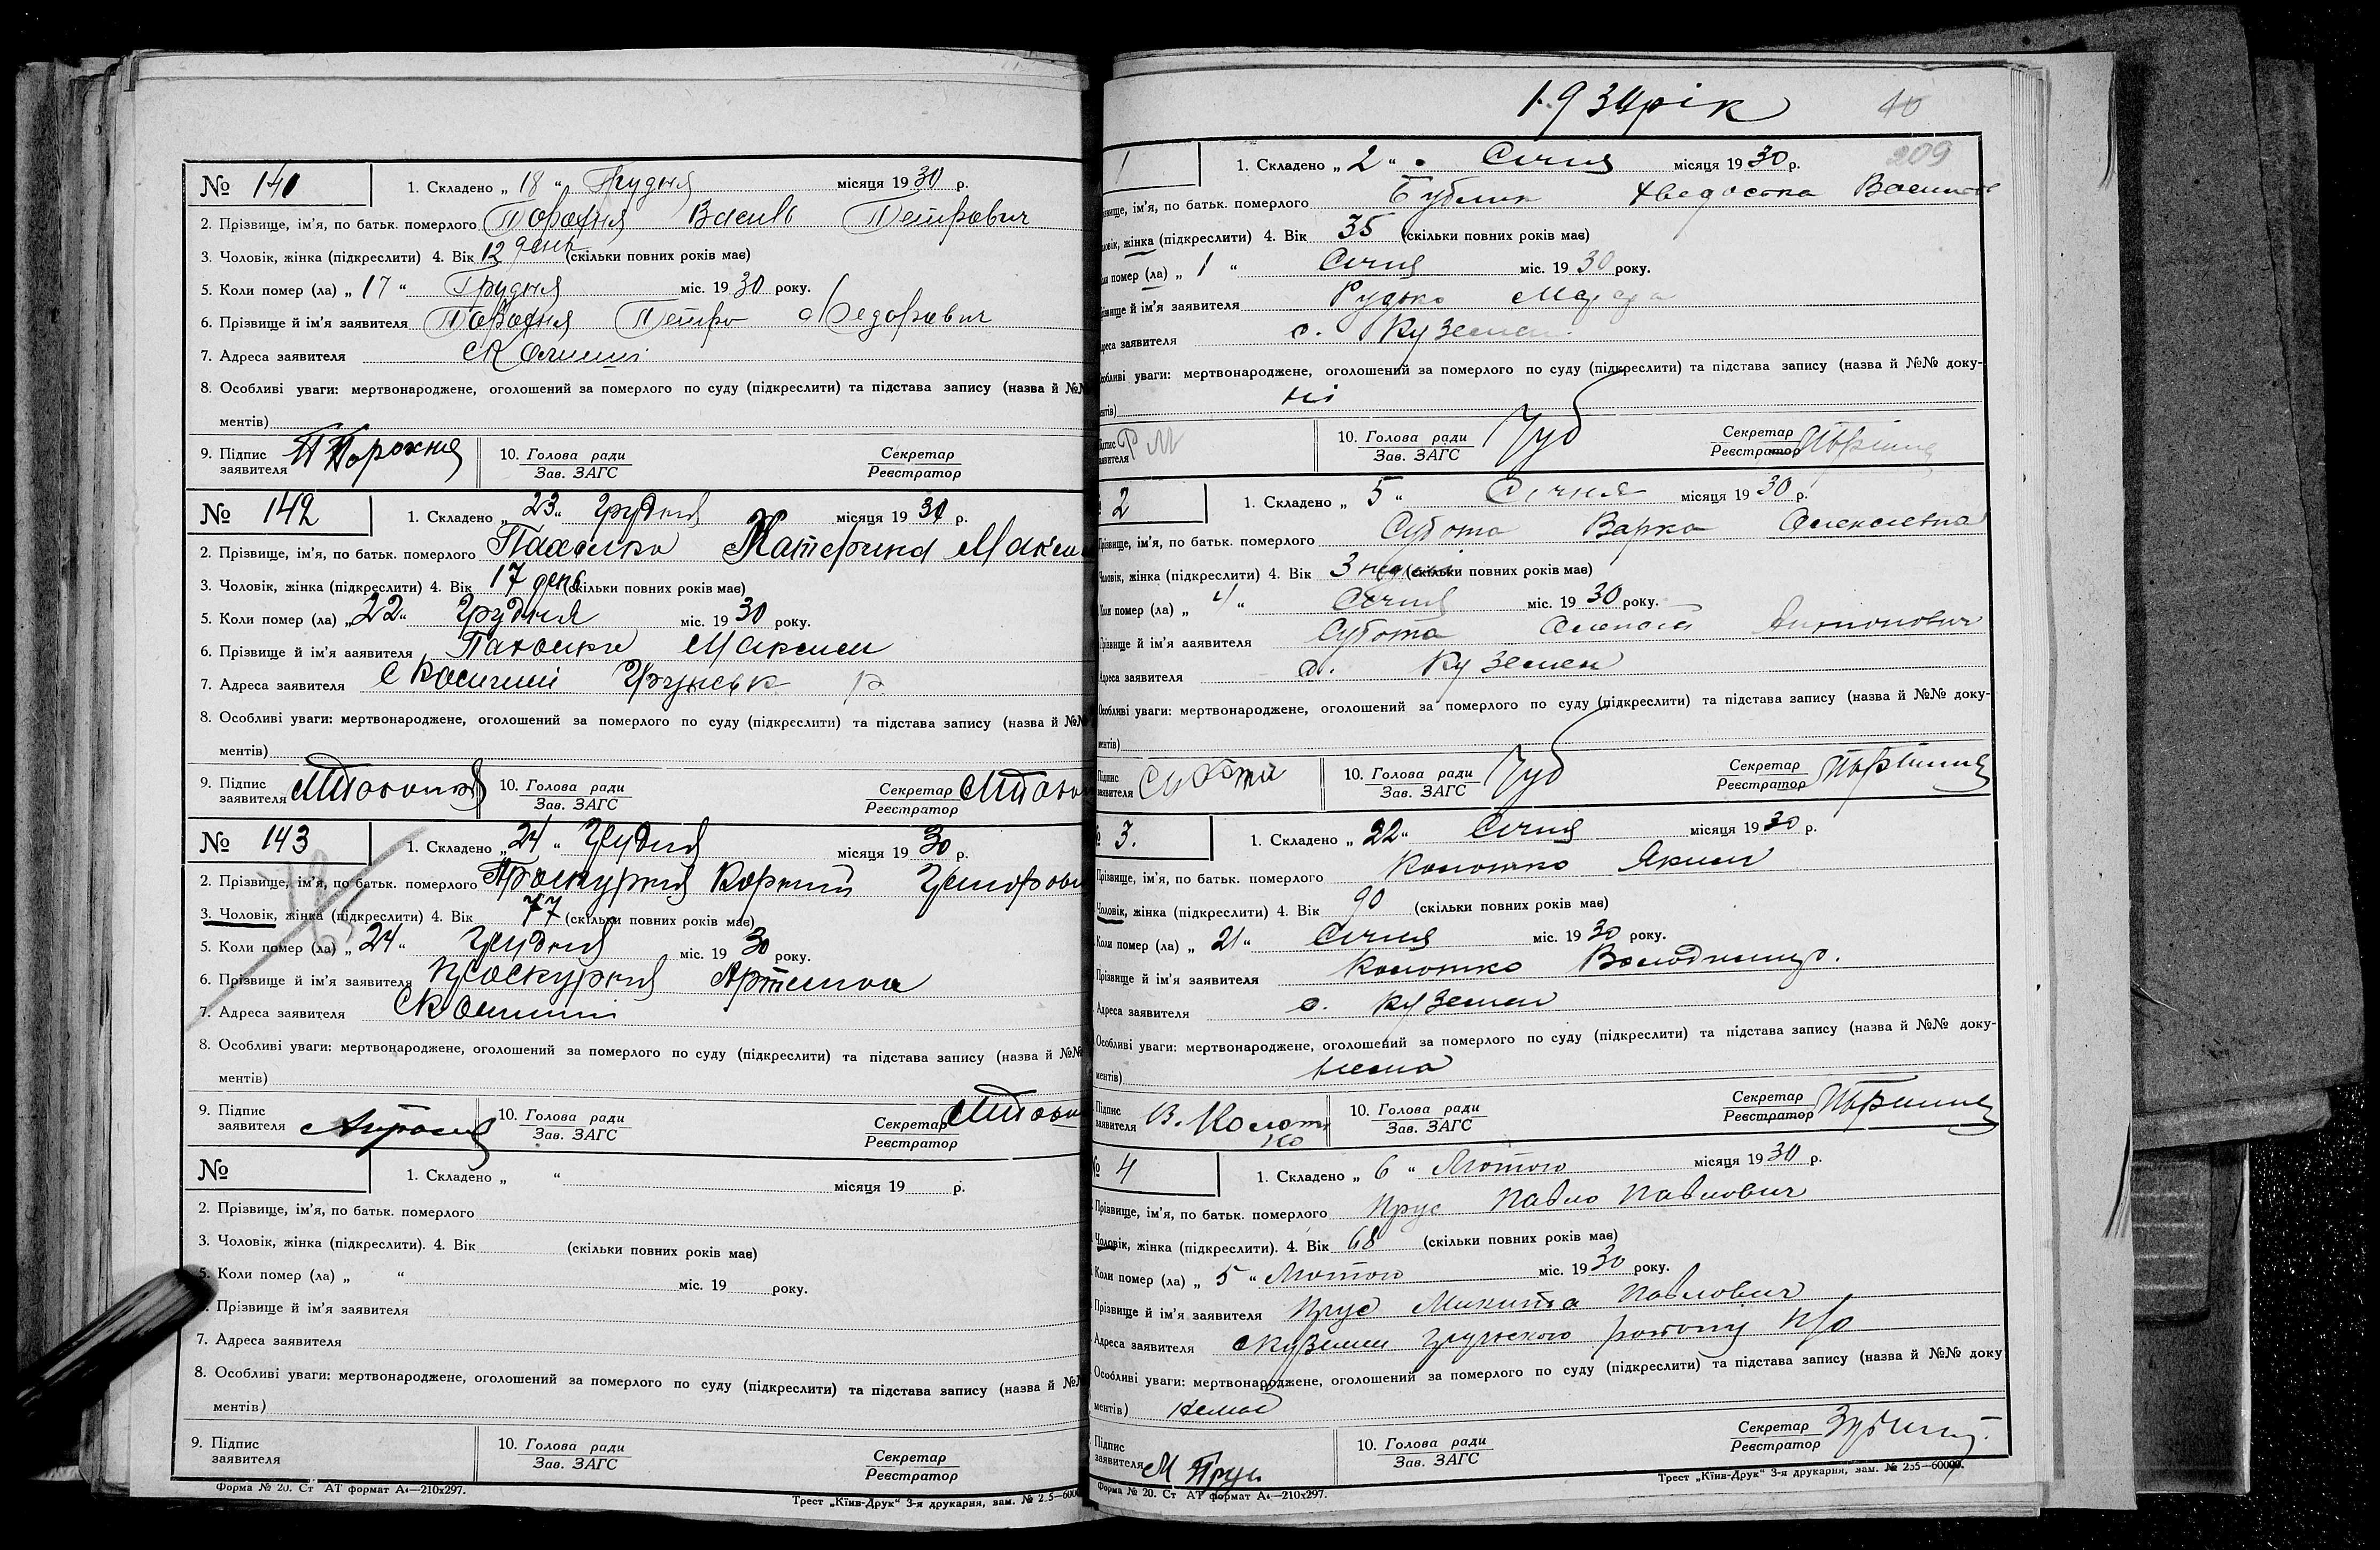 № 141 1. Складено „ 18 “ Грудня місяця 1930 р.
2. Прізвище, ім'я, по батьк. померлого Порохня Василь Петрович
3. Чоловік, жінка (підкреслити) 4. Вік 12 день (скільки повних років має)
5. Коли помер (ла) „ 17 “ Грудня міс. 1930 року.
6. Прізвище й ім'я заявителя Порохня Петро Федорович
7. Адреса заявителя
8. Особливі уваги: мертвонароджене, оголошений за померлого по суду (підкреслити) та підстава запису (назва й №№
ментів)
9. Підпис заявителя П Порохня 10. Голова ради Зав. ЗАГС Секретар Реєстратор
№ 142 1. Складено „ 23 “ Грудня місяця 1930 р.
2. Прізвище, ім'я, по батьк. померлого Катерина Максим
3. Чоловік, жінка (підкреслити) 4. Вік 17 день (скільки повних років має)
5. Коли помер (ла) „ 22 “ Грудня міс. 1930 року.
6. Прізвище й ім'я заявителя Максим
7. Адреса заявителя Грунськ р
8. Особливі уваги: мертвонароджене, оголошений за померлого по суду (підкреслити) та підстава запису (назва й №№
ментів)
9. Підпис заявителя 10. Голова ради Зав. ЗАГС Секретар Реєстратор
№ 143 1. Складено „ 24 “ Грудня місяця 1930 р.
2. Прізвище, ім'я, по батьк. померлого Проскурня Корній
3. Чоловік, жінка (підкреслити) 4. Вік 77 (скільки повних років має)
5. Коли помер (ла) „ 24 “ Грудня міс. 1930 року.
6. Прізвище й ім'я заявителя Проскурня
7. Адреса заявителя
8. Особливі уваги: мертвонароджене, оголошений за померлого по суду (підкреслити) та підстава запису (назва й №№
ментів)
9. Підпис заявителя 10. Голова ради Зав. ЗАГС Секретар Реєстратор
№ 1. Складено „ “ місяця 19 р.
2. Прізвище, ім'я, по батьк. померлого
3. Чоловік, жінка (підкреслити). 4. Вік (скільки повних років має)
5. Коли помер (ла) „ “ міс. 19 року.
Прізвище й ім'я заявителя
7. Адреса заявителя
8. Особливі уваги: мертвонароджене, оголошений за померлого по суду (підкреслити) та підстава запису (назва й №№
ментів)
9. Підпис заявителя 10. Голова ради Зав. ЗАГС Секретар Реєстратор
Форма № 20. Ст АТ формат А4—210х297. Трест „Київ-Друк“ 3-я друкарня, зам. №
1930 рік 40
209
1 1. Складено „ 2 “ Січня місяця 1930 р.
ім'я, по батьк. померлого Бублик
жінка (підкреслити) 4. Вік 35 (скільки повних років має)
помер (ла) „ 1 “ Січня міс. 1930 року.
й ім'я заявителя Рудько
заявителя с. Куземен
уваги: мертвонароджене, оголошений за померлого по суду (підкреслити) та підстава запису (назва й №№ доку-
ментів) ні
Підпис заявителя Р М 10. Голова ради Зав. ЗАГС Чуб Секретар Реєстратор
2 1. Складено „ 5 “ Січня місяця 1930 р.
Прізвище, ім'я, по батьк. померлого Субота Варка Олексіевна
Чоловік, жінка (підкреслити) 4. Вік 3 неділі (скільки повних років має)
Коли помер (ла) „ 4 “ Січня міс. 1930 року.
Прізвище й ім'я заявителя Субота Антонович
Адреса заявителя с. Куземен
Особливі уваги: мертвонароджене, оголошений за померлого по суду (підкреслити) та підстава запису (назва й №№ доку-
ментів)
Підпис заявителя Субота 10. Голова ради Зав. ЗАГС Чуб Секретар Реєстратор
№ 3. 1. Складено „ 22 “ Січня місяця 1930 р.
Прізвище, ім'я, по батьк. померлого Колотко Яким
Чоловік, жінка (підкреслити) 4. Вік 90 (скільки повних років має)
Коли помер (ла) „ 21 “ Січня міс. 1930 року.
Прізвище й ім'я заявителя Колотко
Адреса заявителя с. Куземен
Особливі уваги: мертвонароджене, оголошений за померлого по суду (підкреслити) та підстава запису (назва й №№ доку-
ментів) нема
Підпис заявителя В. Колотко 10. Голова ради Зав. ЗАГС Секретар Реєстратор
№ 4 1. Складено „ 6 “ Лютого місяця 1930 р.
Прізвище, ім'я, по батьк. померлого Прус Павло Павлович
Чоловік, жінка (підкреслити). 4. Вік 68 (скільки повних років має)
Коли помер (ла) „ 5 “ Лютого міс. 1930 року.
Прізвище й ім'я заявителя Прус Микита Павлович
Адреса заявителя с Куземен Грунського району
Особливі уваги: мертвонароджене, оголошений за померлого по суду (підкреслити) та підстава запису (назва й №№ доку
ментів) немає
Підпис заявителя М Прус 10. Голова ради Зав. ЗАГС Секретар Реєстратор
Форма № 20. Ст АТ формат А4—210х297. Трест „Київ-Друк“ 3-я друкарня, зам. № 255—60000.